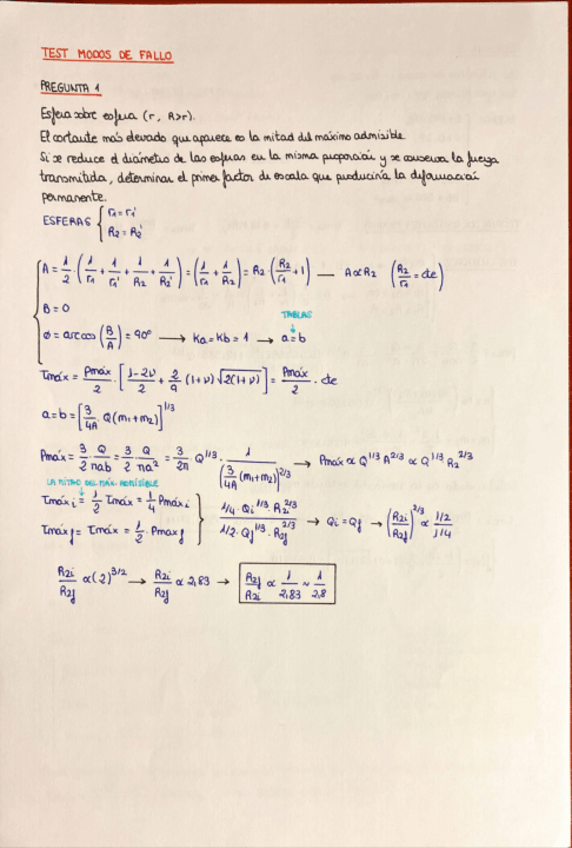 TEST MODOS DE FALLO
PREGUNTA 1
Esfera sobre esfera (r, R>r).
El cortante más elevado que aparece es la mitad del máximo admisible.
Si se reduce el diámetro de las esferas en la misma proporción y se conserva la fuerza
transmitida, determinar el primer factor de escala que produciría la deformación
permanente.
ESFERAS { r1=r1' R2=R2'
A = 1/2 · (1/r1 + 1/r1' + 1/R2 + 1/R2') = (1/r1 + 1/R2) = R2 · (R2/r1 + 1) — A∝R2 (R2/r1 = cte)
B=0
TABLAS
ø = arccos (B/A) = 90º → Ka=Kb=1 → a=b
Tmáx = Pmáx/2 · [1-2ν/2 + 2/9 (1+ν) √2(1+ν)] = Pmáx/2 · cte
a=b = [3/4A · Q(m1+m2)]^1/3
Pmáx = 3/2 · Q/πab = 3/2 · Q/πa² = 3/2π · Q^1/3 · 1/[3/4A (m1+m2)]^2/3 → Pmáx ∝ Q^1/3 A^2/3 ∝ Q^1/3 R2^2/3
LA MITAD DEL MÁX. ADMISIBLE
Tmáx i = 1/2 Tmáx = 1/4 Pmáx i
Tmáx j = Tmáx = 1/2 · Pmax j } 1/4 · Qi^1/3 · R2i^2/3 / 1/2 · Qj^1/3 · R2j^2/3 → Qi=Qj → (R2i/R2j)^2/3 ∝ 1/2 / 1/4
R2i/R2j ∝ (2)^3/2 → R2i/R2j ∝ 2,83 → R2j/R2i ∝ 1/2,83 ~ 1/2,8